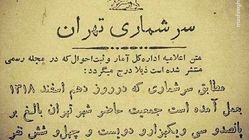 سرشماری تهران
متن اعلامیه اداره کل آمار و ثبت احوال که در مجله رسمی
منتشر شده است ذیلا درج میگردد:
مطابق سرشماری که در روز دهم اسفند ۱۳۱۸
بعمل آمده است جمعیت حاضر شهر تهران بالغ بر
پانصد و سی و یکهزار و دویست و چهل و شش نفر